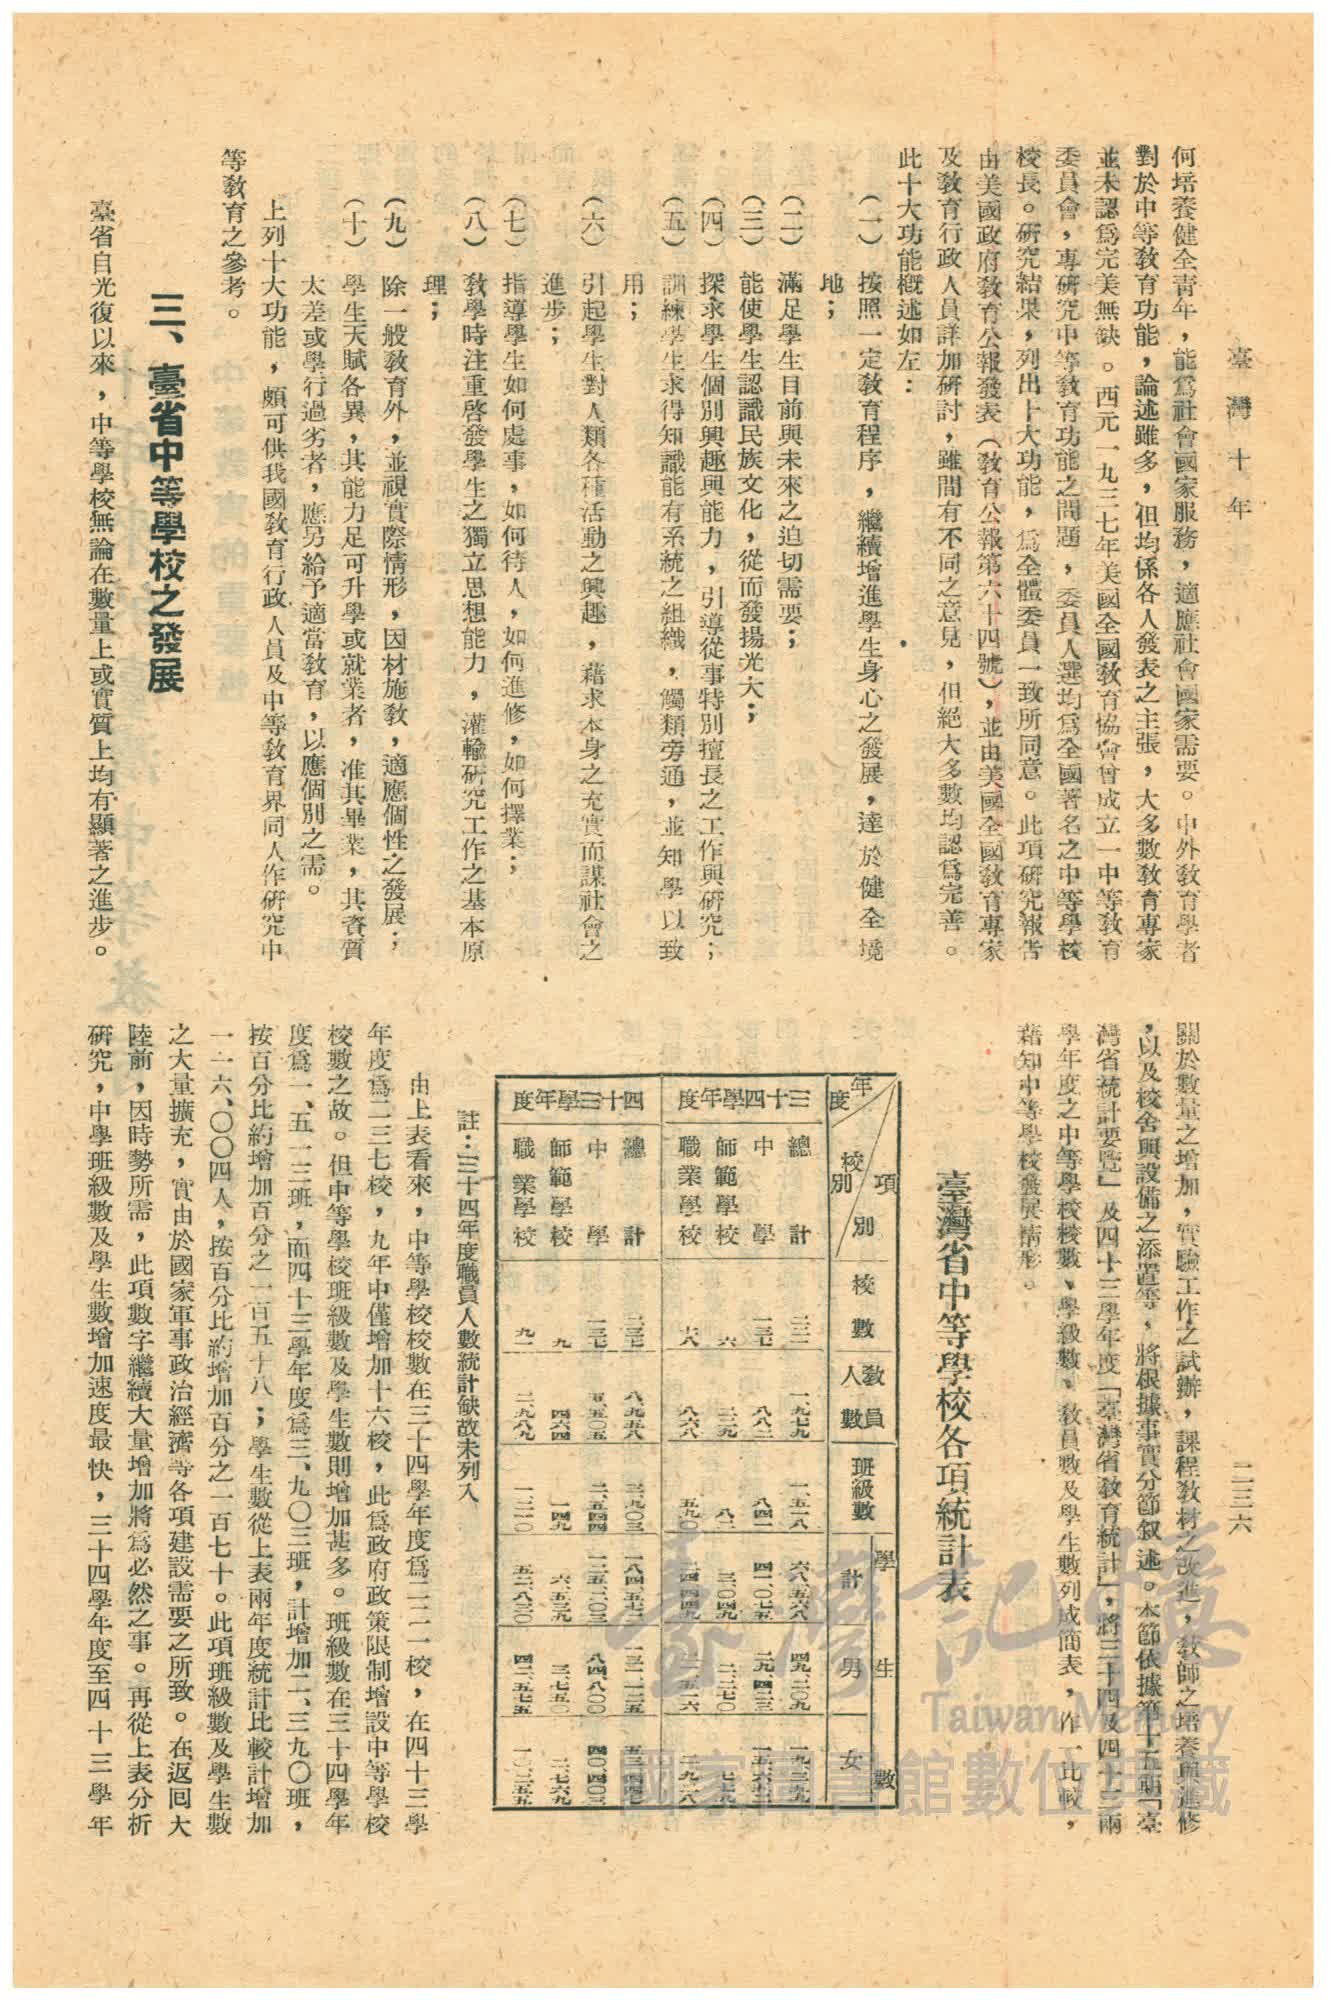 臺灣十年
二三六
何培養健全青年，能爲社會國家服務，適應社會國家需要。中外教育學者
對於中等教育功能，論述雖多，但均係各人發表之主張，大多數教育專家
並未認爲完美無缺。西元一九三七年美國全國教育協會曾成立一中等教育
委員會，專研究中等教育功能之問題，委員人選均爲全國著名之中等學校
校長。研究結果，列出十大功能，爲全體委員一致所同意。此項研究報告
由美國政府教育公報發表（敎育公報第六十四號），並由美國全國敎育專家
及敎育行政人員詳加研討，雖間有不同之意見，但絕大多數均認爲完善。
此十大功能概述如左：
（一）按照一定敎育程序，繼續增進學生身心之發展，達於健全境
地；
（二）滿足學生目前與未來之迫切需要；
（三）能使學生認識民族文化，從而發揚光大；
（四）探求學生個別興趣與能力，引導從事特別擅長之工作與研究；
（五）訓練學生求得知識能有系統之組織，觸類旁通，並知學以致
用；
（六）引起學生對人類各種活動之興趣，藉求本身之充實而謀社會之
進步；
（七）指導學生如何處事，如何待人，如何進修，如何擇業；
（八）敎學時注重啓發學生之獨立思想能力，灌輸研究工作之基本原
理；
（九）除一般敎育外，並視實際情形，因材施敎，適應個性之發展；
（十）學生天賦各異，其能力足可升學或就業者，准其畢業，其資質
太差或學行過劣者，應另給予適當敎育，以應個別之需。
上列十大功能，頗可供我國敎育行政人員及中等敎育界同人作研究中
等敎育之參考。
三、臺省中等學校之發展
臺省自光復以來，中等學校無論在數量上或實質上均有顯著之進步。
關於數量之增加，實驗工作之試辦，課程敎材之改進，敎師之培養與進修
，以及校舍與設備之添置等，將根據事實分節叙述。本節依據第十五期「臺
灣省統計要覽」及四十三學年度「臺灣省敎育統計」，將三十四及四十三兩
學年度之中等學校校數、學級數、敎員數及學生數列成簡表，作一比較，
藉知中等學校發展情形。
臺灣省中等學校各項統計表
年度 校別 項別 校數 敎員人數 班級數 學生數 計 男 女
三十四學年度
總計 二二一 一、九七九 一、五一八 六八、五六八 四九、二〇九 一九、三五九
中學 一三七 八八二 八四一 四一、〇七五 二九、四二三 一五、六五二
師範學校 六 二二九 八二 三、〇四九 二、二七〇 七七九
職業學校 七八 八六八 五九〇 二四、四四九 二一、五一六 二、九二八
四十三學年度
總計 二三七 八、九五八 三、九〇三 一八四、五七二 一三一、一二五 五三、四四七
中學 一三七 五、五〇五 二、五四四 一二五、二〇三 八四、八〇〇 四〇、四〇三
師範學校 九 四六四 一四九 六、五三九 三、七五〇 二、七六九
職業學校 九一 二、九八九 一、二一〇 五二、八三〇 四二、五七五 一〇、二五五
註：三十四年度職員人數統計缺故未列入
由上表看來，中等學校校數在三十四學年度爲二二一校，在四十三學
年度爲二三七校，九年中僅增加十六校，此爲政府政策限制增設中等學校
校數之故。但中等學校班級數及學生數則增加甚多。班級數在三十四學年
度爲一、五一三班，而四十三學年度爲三、九〇三班，計增加二、三九〇班，
按百分比約增加百分之一百五十八；學生數從上表兩年度統計比較計增加
一一六、〇〇四人，按百分比約增加百分之一百七十。此項班級數及學生數
之大量擴充，實由於國家軍事政治經濟等各項建設需要之所致。在返回大
陸前，因時勢所需，此項數字繼續大量增加將爲必然之事。再從上表分析
研究，中學班級數及學生數增加速度最快，三十四學年度至四十三學年
臺灣記憶
Taiwan Memory
國家圖書館數位典藏